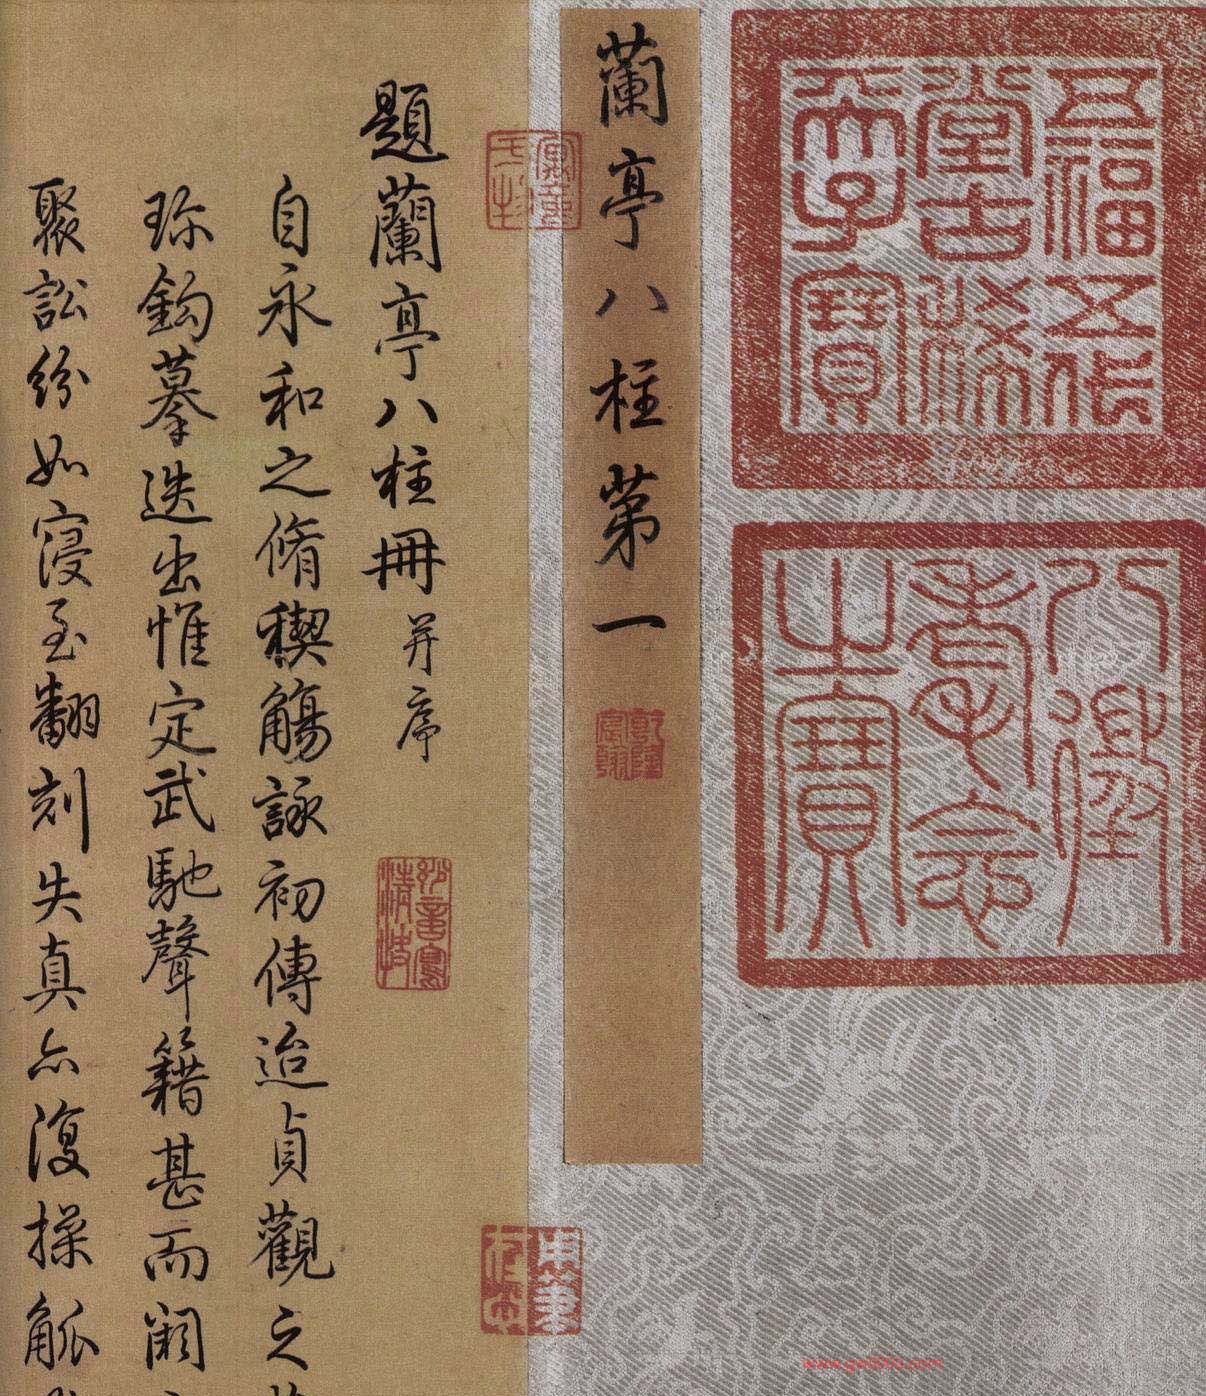 五福五代
堂古稀
天子寶
八徵
耄念
之寶
蘭亭八柱第一
乾隆
宸翰
題蘭亭八柱冊并序
自永和之脩禊觴詠初傳迨貞觀之
珎鈎摹迭出惟定武馳聲籍甚而闕
聚訟紛如寖至翻刻失真亦復操觚